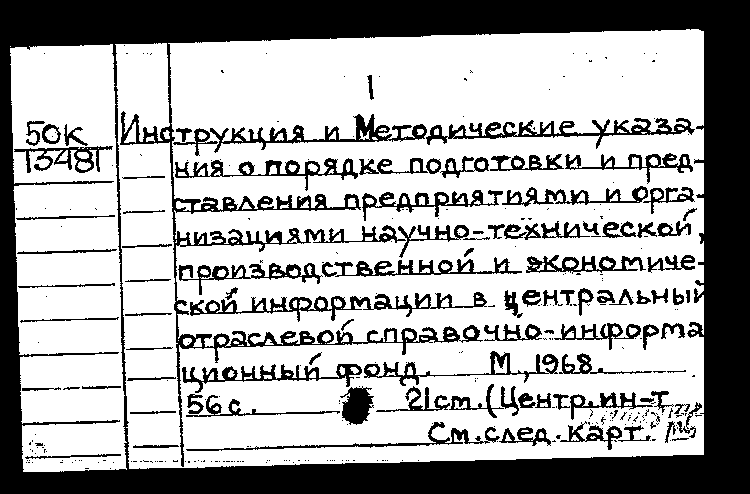 1
50К
13481
Инструкция и Методические указа-
ния о порядке подготовки и пред-
ставления предприятиями и орга-
низациями научно-технической,
производственной и экономиче-
ской информации в центральный
отраслевой справочно-информа
ционный фонд. М., 1968.
56 с. 21 см. (Центр. ин-т
См. след. карт.